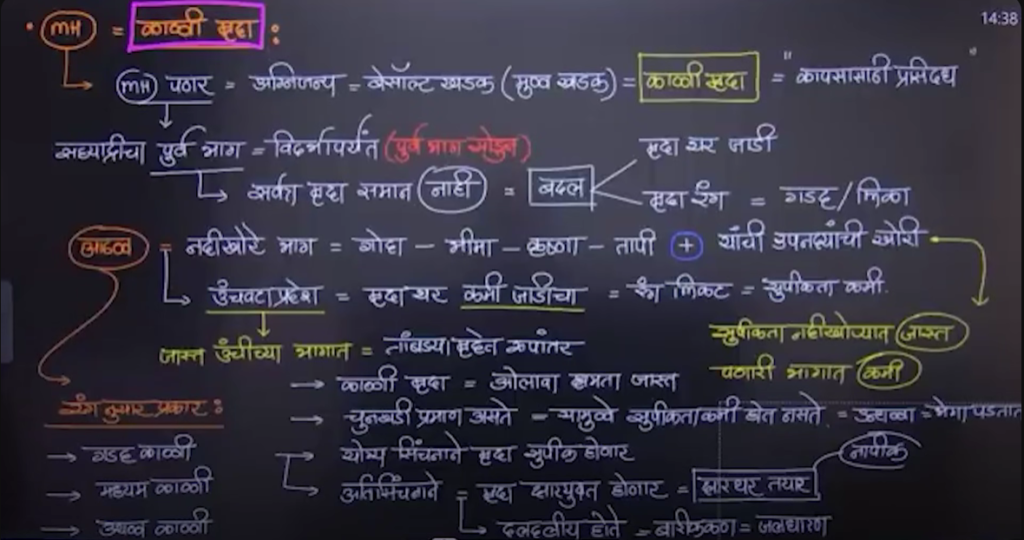 14:38
• MH = काळी मृदा :
MH पठार = अग्निजन्य = बेसॉल्ट खडक (मुख्य खडक) = काळी मृदा = "कापसासाठी प्रसिद्ध"
सह्याद्रीचा पुर्व भाग = विदर्भापर्यंत (पुर्व भाग सोडून)
मृदा थर जाडी
सर्वत्र मृदा समान नाही = बदल
मृदा रंग = गडद / फिका
आढळ = नदीखोरे भाग = गोदा - भीमा - कृष्णा - तापी + यांची उपनद्यांची खोरी
उंचवटा प्रदेश = मृदा थर कमी जाडीचा = रंग फिकट = सुपीकता कमी.
जास्त उंचीच्या भागात = तांबड्या मृदेत रुपांतर
सुपीकता नदीखोऱ्यात जास्त
पठारी भागात कमी
→ काळी मृदा = ओलावा क्षमता जास्त
रंगानुसार प्रकार :
→ चुनखडी प्रमाण असते = यामुळे सुपीकता कमी होत नसते. = उथळ = भेगा पडतात
→ गडद काळी
→ योग्य सिंचनाने मृदा सुपीक होणार
नापीक
→ मध्यम काळी
→ अतिसिंचनाने = मृदा क्षारयुक्त होणार = क्षारथर तयार
→ उथळ काळी
→ दलदलीय होते = बारीक कण = जलधारण